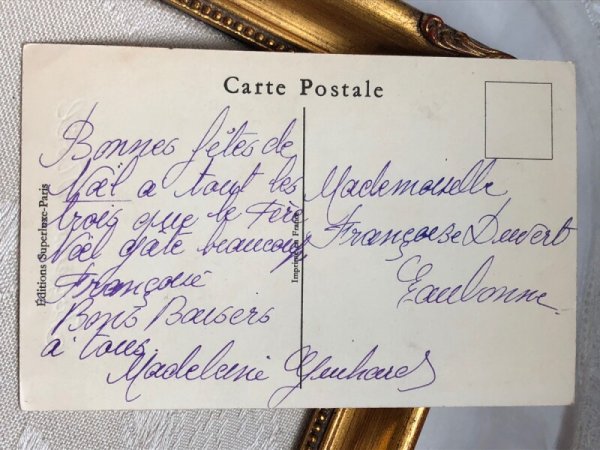 Carte Postale
Bonnes fêtes de
Noël a tout les
trois que le Père
Noël gate beaucoup
Françoise
Bons Baisers
à tous.
Madeleine
Mademoiselle
Françoise Duvert
Eaubonne
Éditions Superluxe-Paris
Imprimé en France